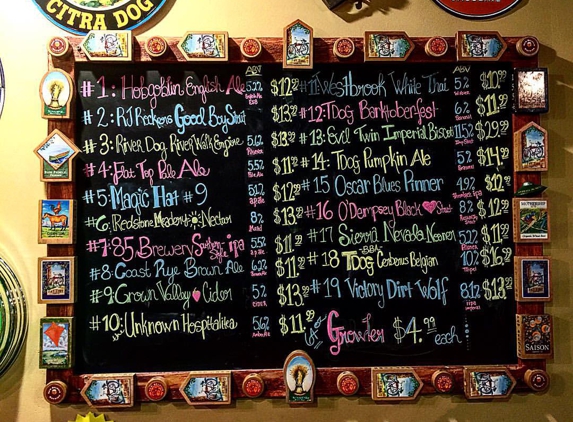 CITRA DOG
ABV
#1: Hopgoblin English Ale 5.2% $12.00
#2: RJ Rockers Good Boy Stout $13.00
#3: River Dog RiverWalk Engine 5.6% $13.00
#4: Flat Top Pale Ale 5.5% $11.00
#5: Magic Hat #9 5.1% $12.00
#6: Redstone Meadery Nectar 8% $13.00
#7: 85 Brewery Southern Style ipa 55 $11.00
#8: Coast Rye Brown Ale $11.00
#9: Grown Valley Cider 5% CIDER $13.00
#10: Unknown Hospitalika 5.6% $11.00
ABV
#11 Westbrook White Thai 5% $10.00
#12: TDog Barktoberfest 6% $11.00
#13: Evil Twin Imperial Biscotti 11.5% $29.00
#14: TDog Pumpkin Ale 5% $14.00
#15 Oscar Blues Pinner 4.9% $12.00
#16 O'Dempsey Black Stout 8% $12.00
#17 Sierra Nevada Nooner 5.2% $11.00
#18 TDog BBA Cerberus Belgian 10% $16.00
#19 Victory Dirt Wolf 8.7% $13.00
Growler $4.99 each
SAISON